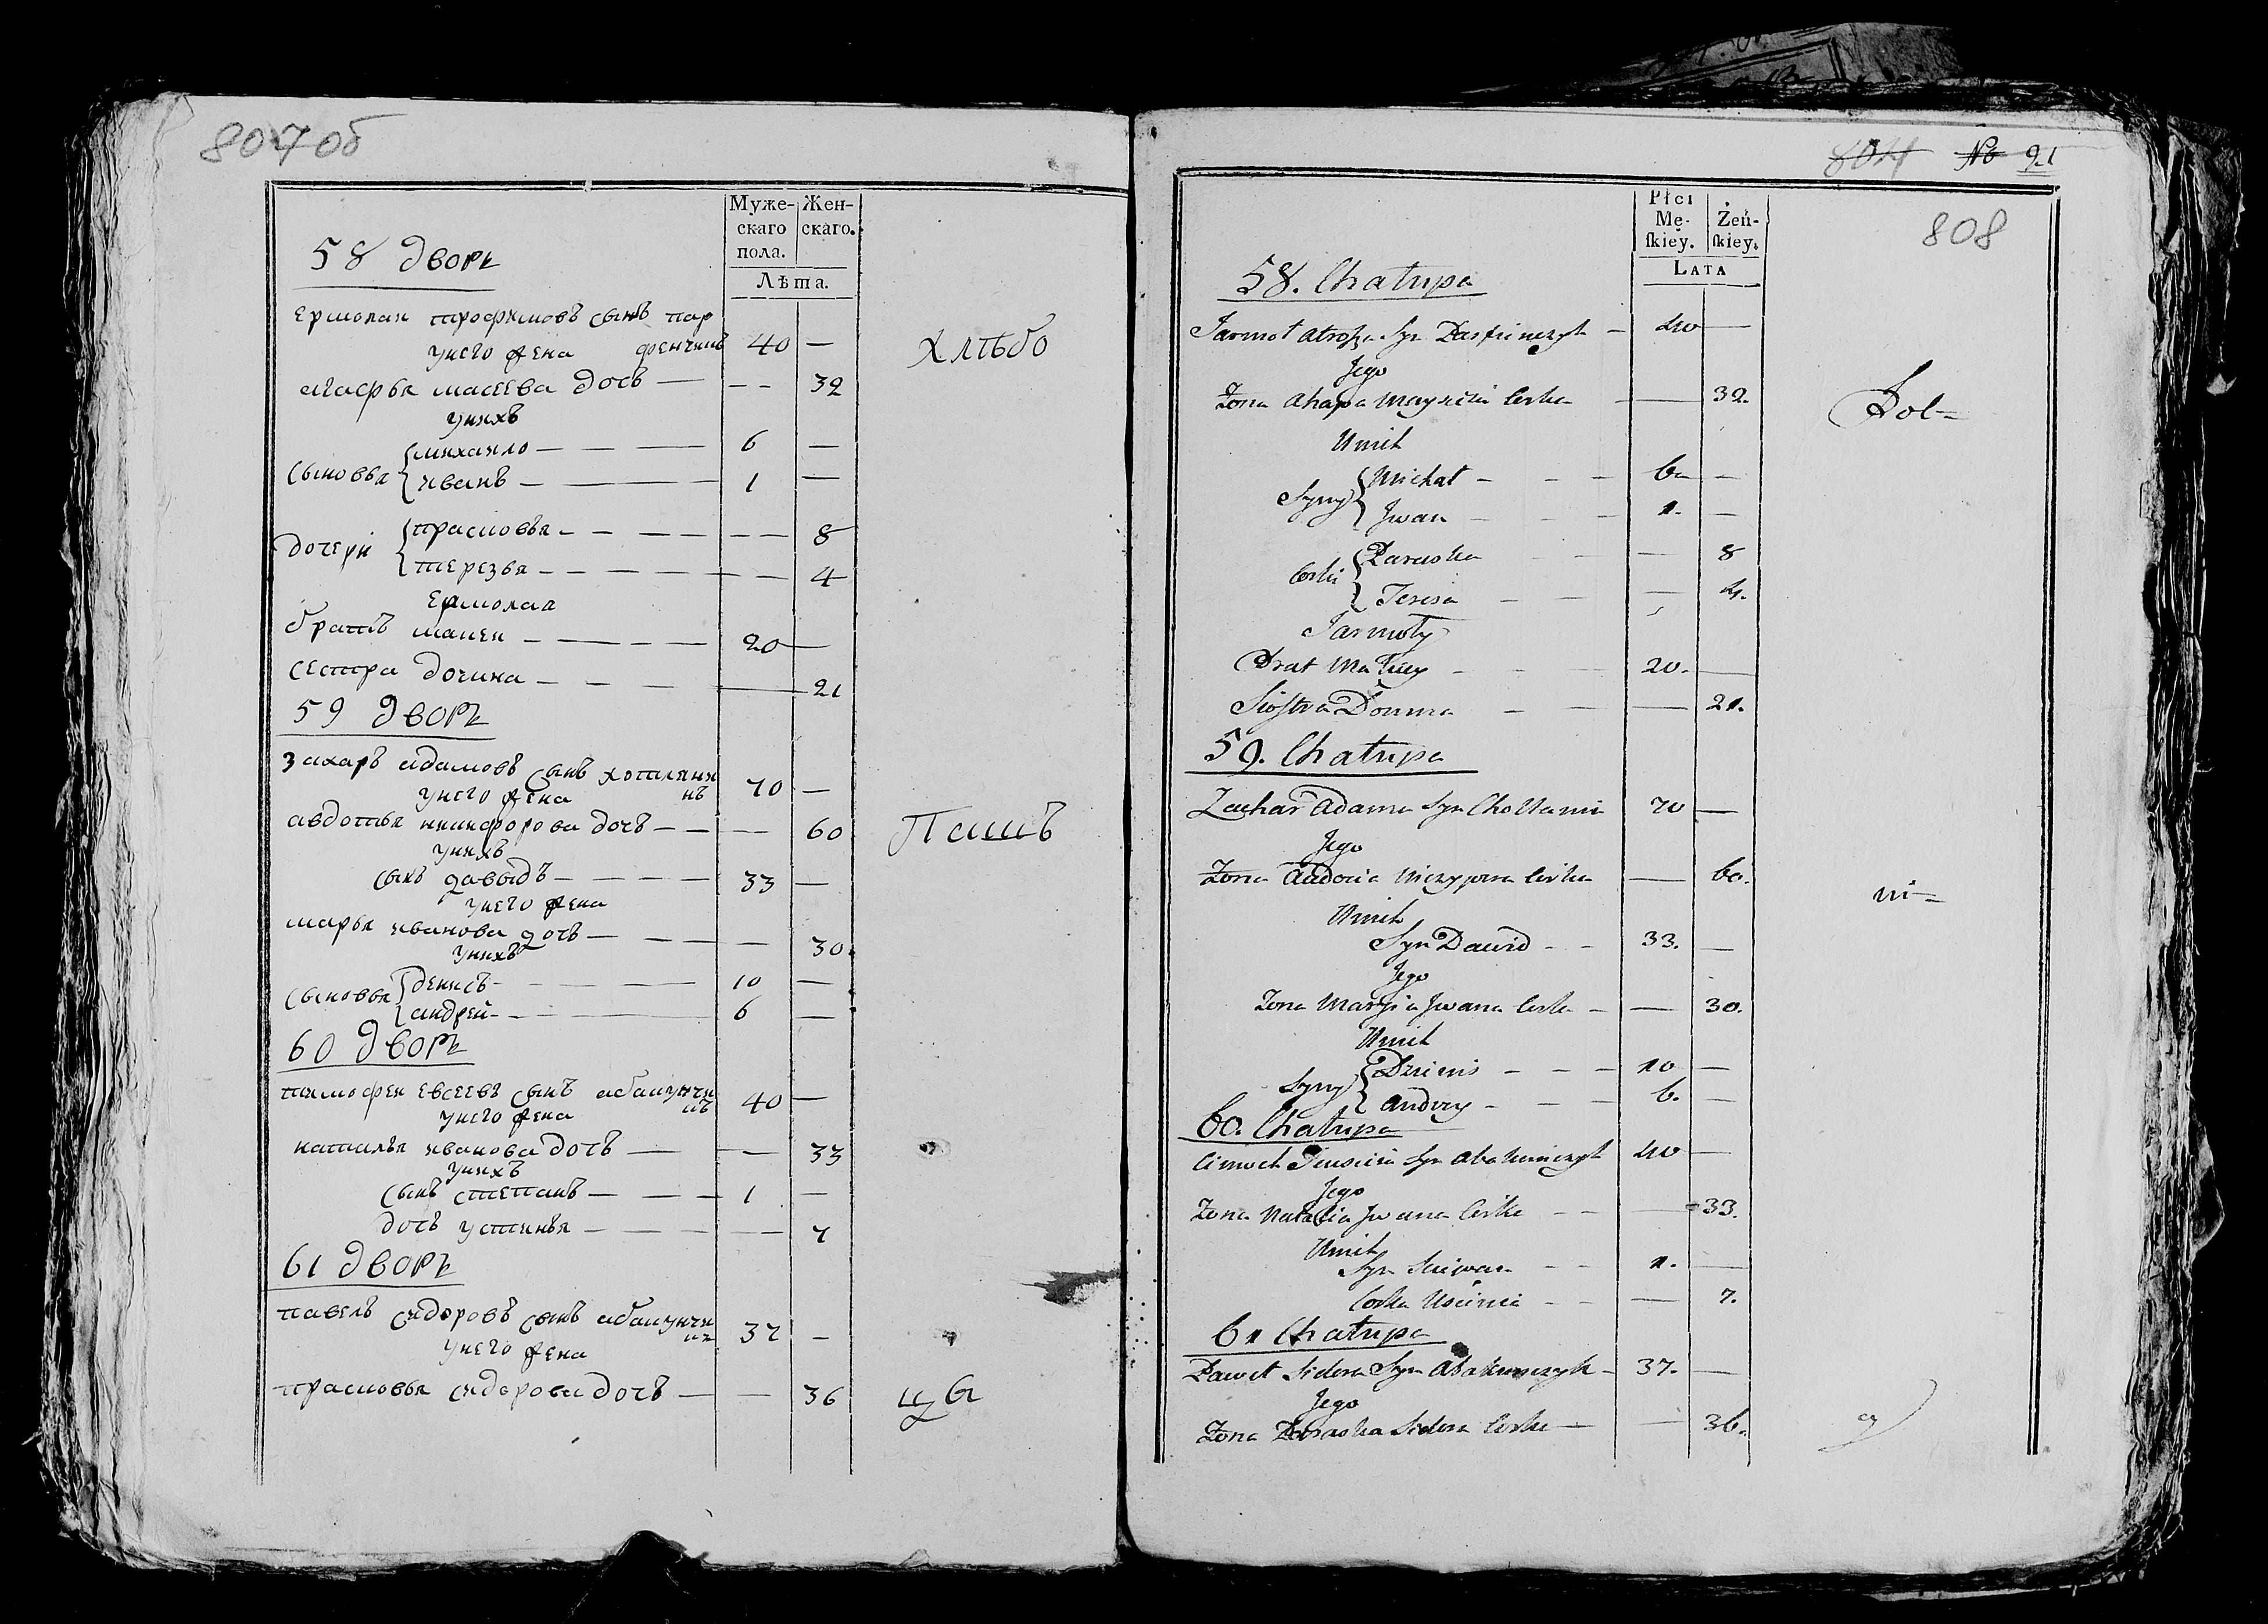 807об
Муже-
скаго
пола.
Жен-
скаго.
Лѣта.
58 дворъ
Ермолай трофимовъ сынъ пар
фенчикъ 40 —
у него жена
агафья масеева дочь — — 32
у нихъ
сыновья
михайло — 6 —
иванъ — 1 —
дочери
прасковья — — 8
терезья — — 4
Ермолая
братъ матей — 20 —
сестра домина — — 21
хлѣбо
59 дворъ
захаръ адамовъ сынъ хотляни
нъ 70 —
у него жена
авдотья никифорова дочь — — 60
у нихъ
сынъ давыдъ — 33 —
у него жена
марья иванова дочь — — 30
у нихъ
сыновья
денисъ — 10 —
андрей — 6 —
Пашъ
60 дворъ
тимофей Евсеевъ сынъ абакунчи
къ 40 —
у него жена
наталья иванова дочь — — 33
у нихъ
сынъ степанъ — 1 —
дочь устинья — — 7
61 дворъ
павелъ сидоровъ сынъ абакунчи
къ 37 —
у него жена
прасковья сидорова дочь — — 36
цы
804 No 91
808
Płci
Mę-
ſkiey.
Żeń-
ſkiey.
LATA
58. Chałupa
Jarmoł Atrofa Syn Parfinczyk — 40 —
Jego
Zona Ahapa Mayseia Corka — 32.
Unich
Syny
Michał — 6 —
Jwan — 1. —
Corki
Paraska — 8
Teresa — 4.
Jarmoły
Brat Maciey — 20. —
Siostra Domna — 21.
Rol=
59. Chałupa
Zachar Adama Syn Chotlanin 70 —
Jego
Zona Audocia Niczypora Corka — 60.
Unich
Syn Dawid — 33. —
Jego
Zona Maryia Jwana Corka — 30.
Unich
Syny
Dzienis — 10 —
Andrey — 6. —
ni=
60. Chałupa
Cimoch Jewsieia Syn Abakunczyk 40 —
Jego
Zona Natalia Jwana Corka — 33.
Unich
Syn Sciepan — 1. —
Corka Uscinia — 7.
61 Chałupa
Paweł Sidora Syn Abakunczyk — 37. —
Jego
Zona Paraska Sidora Corka — 36.
cy